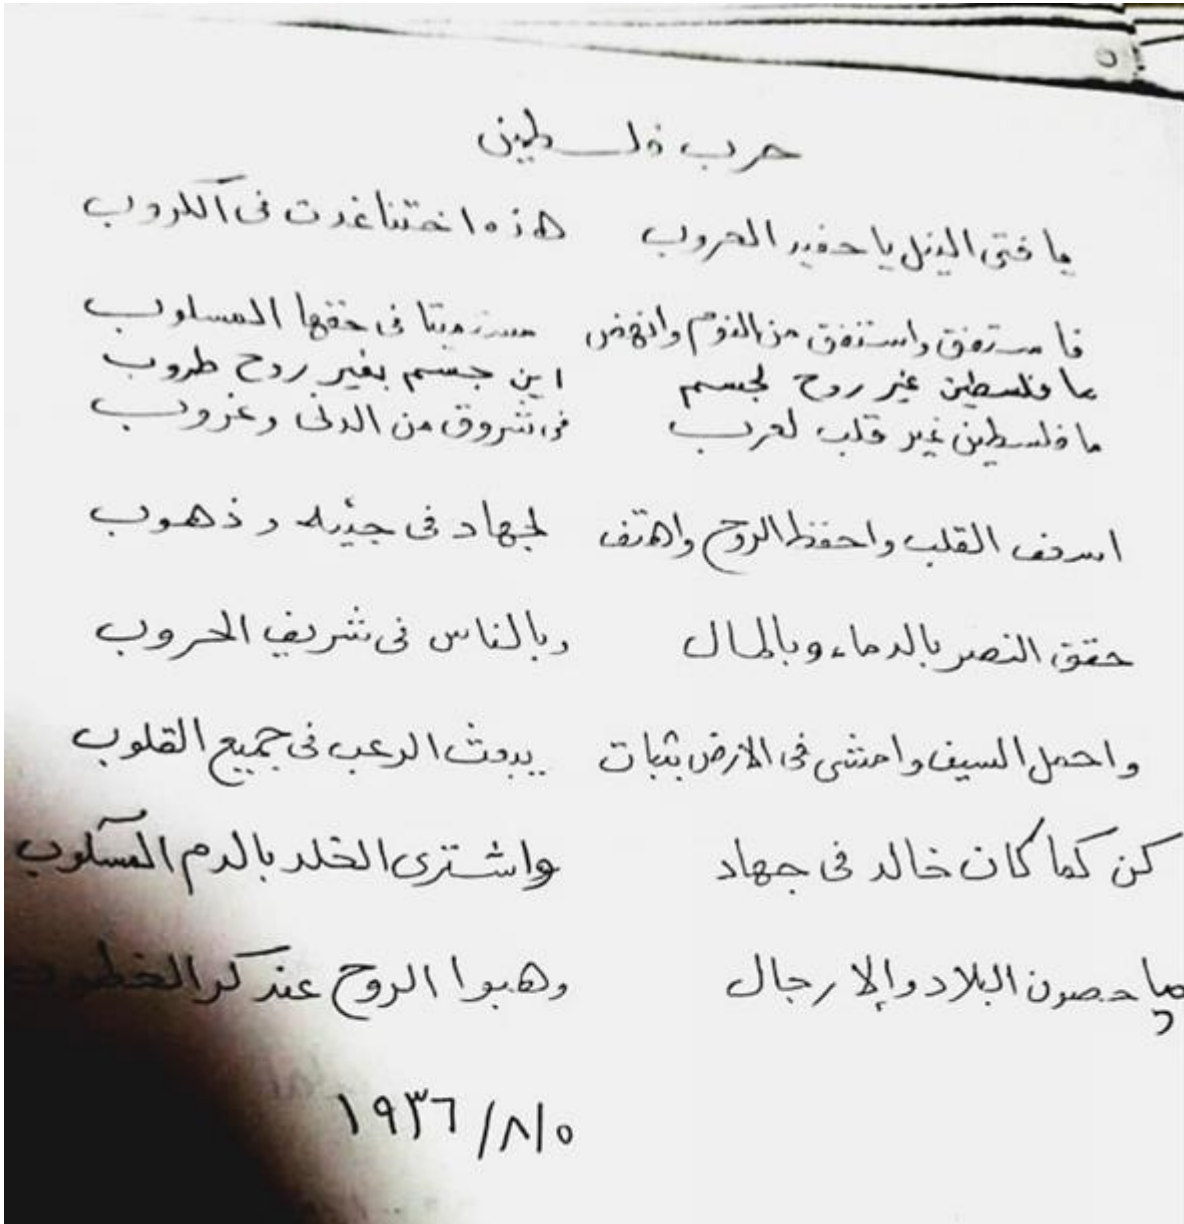 حرب فلسطين
يا فتى النيل يا حفيد الحروب هذه اختنا غدت فى الكروب
فا ستفق واستفق من النوم وانهض مستميتا فى حقها المسلوب
ما فلسطين غير روح لجسم اين جسم بغير روح طروب
ما فلسطين غير قلب لعرب فى شروق من الدنى وغروب
اسعف القلب واحفظ الروح واهتف لجهاد فى جيئه وذهوب
حقق النصر بالدماء وبالمال وبالناس فى شريف الحروب
واحمل السيف وامشى فى الارض بثبات يبعث الرعب فى جميع القلوب
كن كما كان خالد فى جهاد واشترى الخلد بالدم المسكوب
ما حصون البلاد إلا رجال وهبوا الروح عند كر الخطوب
١٩٣٦/٨/٥